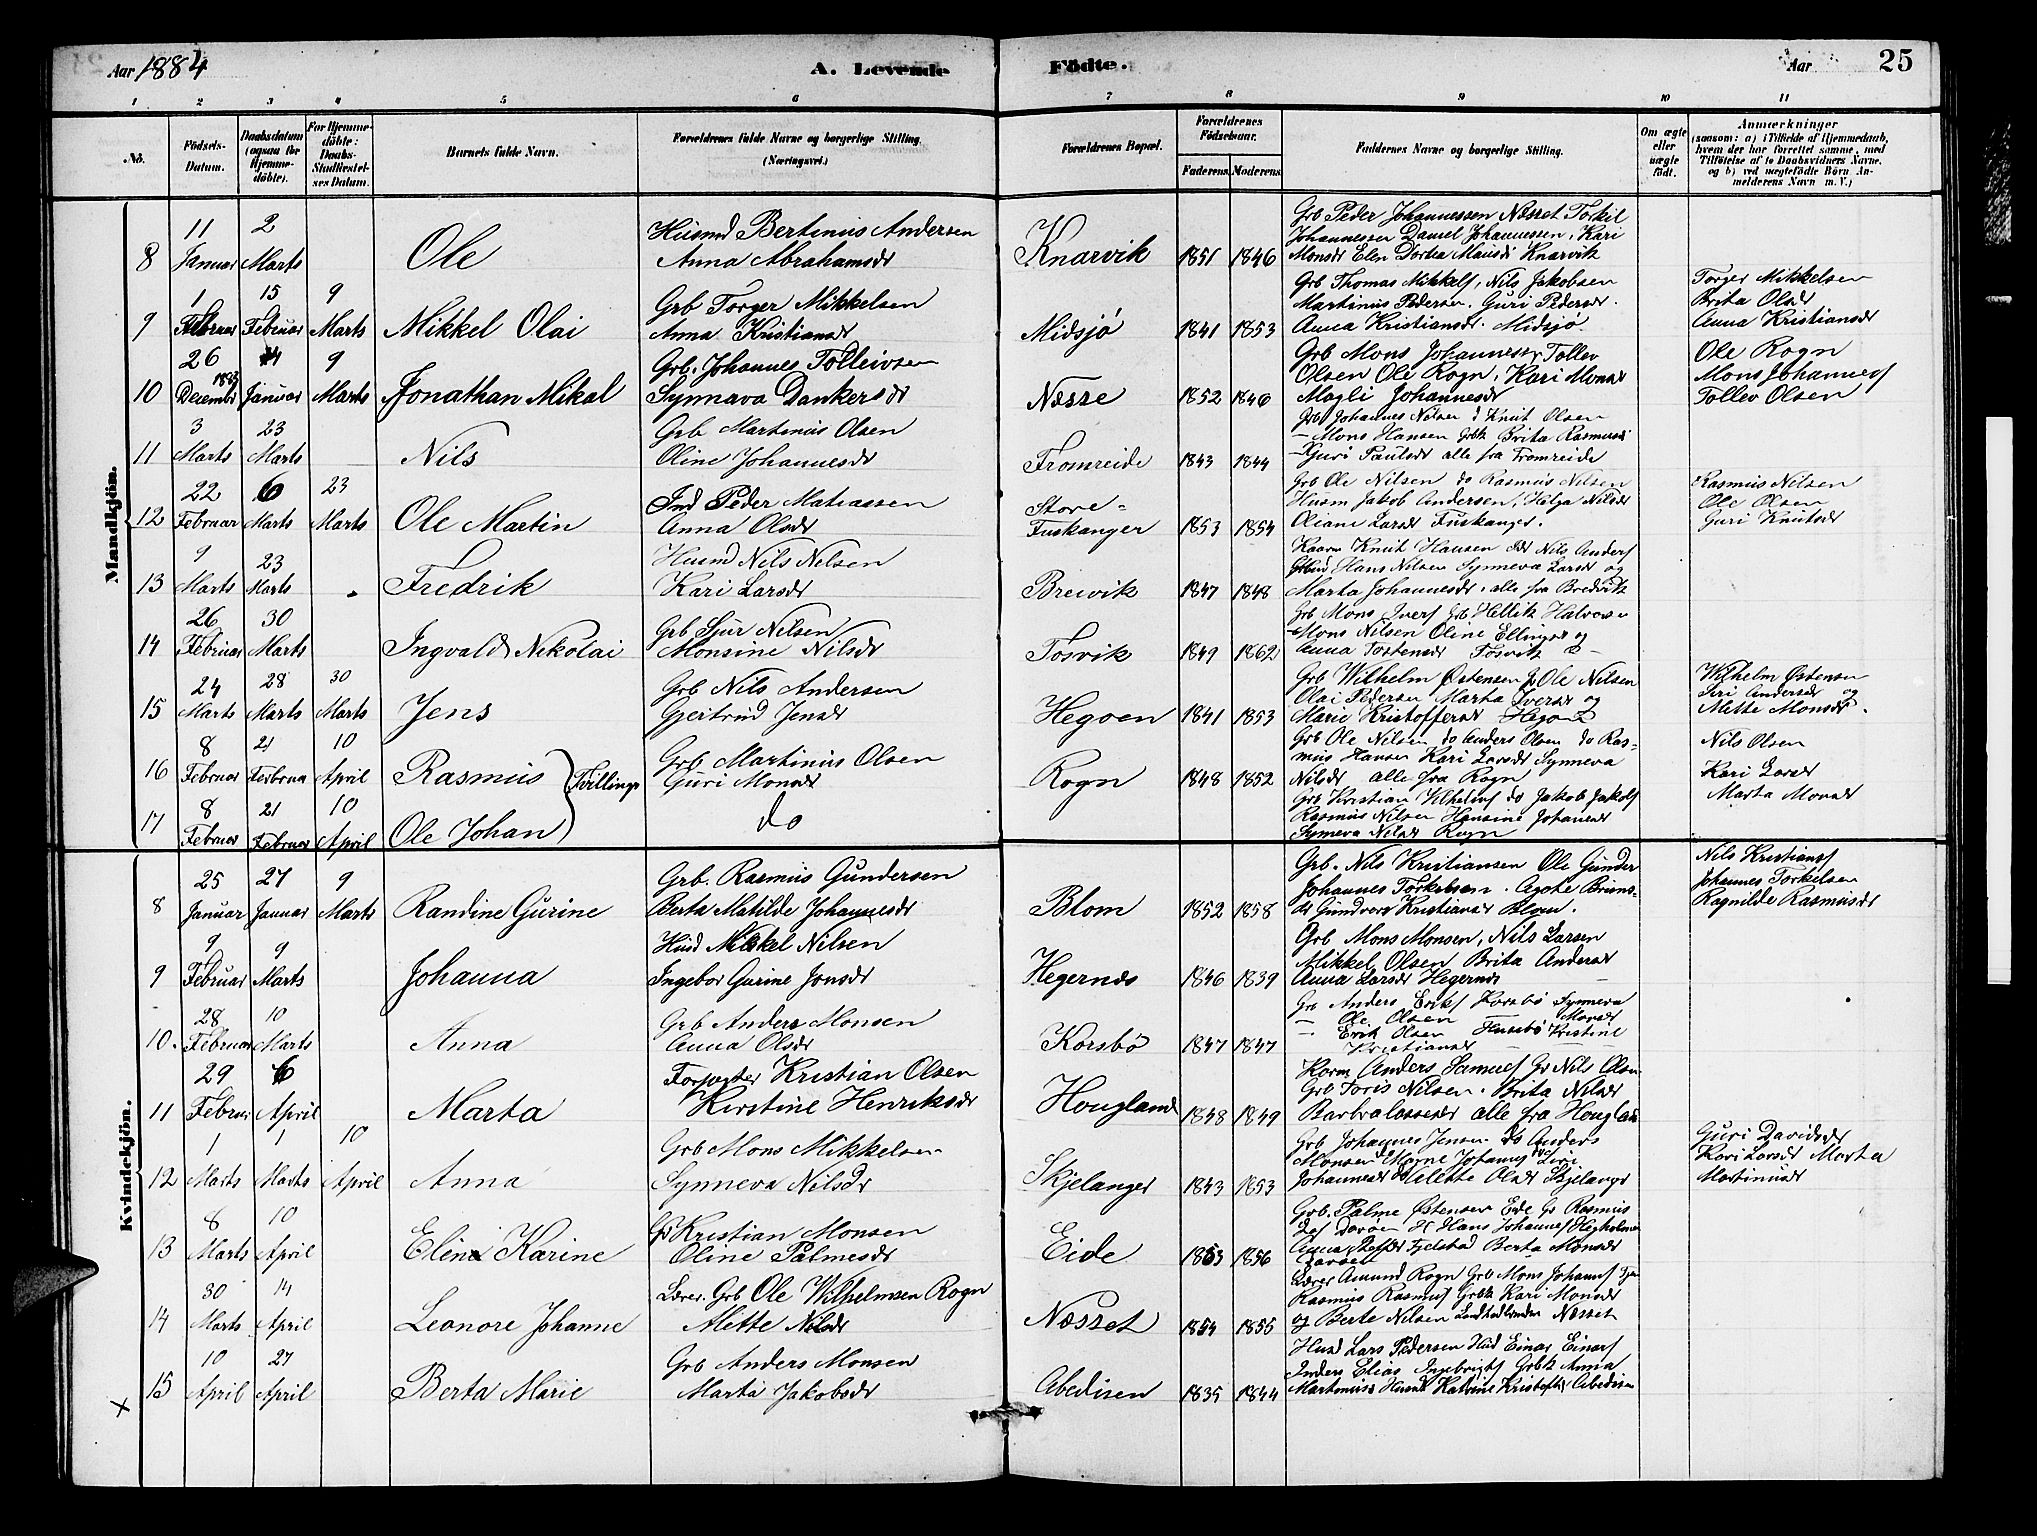 Aar 1884
A. Levende Födte.
Aar
25
1 2 3 4 5 6 7 8 9 10 11
No.
Födsels-Datum.
Daabsdatum (ogsaa for Hjemmedöbte).
For Hjemmedöbte: Daabs-Stadfæstelses Datum.
Barnets fulde Navn.
Forældrenes fulde Navne og borgerlige Stilling (Næringsvei.)
Forældrenes Bopæl.
Forældrenes Födselsaar.
Faderens Moderens
Faddernes Navne og borgerlige Stilling.
Om ægte eller uægte födt.
Anmærkninger (saasom: a) i Tilfælde af Hjemmedaab, hvem der har forrettet samme, med Tilföielse af to Daabsvidners Navne, og b) ved uægtefödte Börn Anmelderens Navn m. V.)
Mandkjön.
8 11 Januar 2 Marts Ole
Husmd Bertinus Andersen
Anna Abrahamsdr
Knarvik 1851 1846
Grb Peder Johannessen Næsset Torkil
Johannessen Daniel Johannessen, Kari
Monsdr Elen Dortea Mansdr Knarvik
9 1 Februar 15 Februar 9 Marts Mikkel Olai
Grb Torger Mikkelsen
Anna Kristiansdr
Midsjø 1841 1853
Grb Thomas Mikkels, Nils Jakobsen
Martinus Pedersen. Guri Pedersdr.
Anna Kristiansdr. Midsjø
Torger Mikkelsen
Brita Olsdr
Anna Kristiansdr
10 26 December 1883 Januar 9 Marts Jonathan Mikal
Grb. Johannes Tolleivsen
Synnava Dankersdr
Næsse 1852 1846
Grb Mons Johannessen Tollev
Olsen Ole Rogn, Kari Monsdr
Magli Johannesdr
Ole Rogn
Mons Johannes
Tollev Olsen
11 3 Marts 23 Marts Nils
Grb Martinus Olsen
Oline Johannesdr
Fromreide 1843 1844
Grb Johannes Nilsen d Knut Olsen
— Mons Hansen Grbk Brita Rasmusd
Guri Paulsdr alle fra Fromreide
12 22 Februar 6 Marts 23 Marts Ole Martin
Ind Peder Matiassen
Anna Olsdr
Store-
Fuskanger 1853 1854
Grb Ole Nilsen do Rasmus Nilsen
Husm Jakob Andersen, Helga Nilsdr
Oliane Larsdr Fuskanger.
Rasmus Nilsen
Ole Olsen
Guri Knutsdr
13 9 Marts 23 Marts Fredrik
Husmd Nils Nilsen
Kari Larsdr
Breivik 1847 1848
Kaarm Knut Hansen do Nils Anders
Hans Nilsen Synneva Larsdr og
Marta Johannesdr, alle fra Bredvik
14 26 Februar 30 Marts Ingvald Nikolai
Grb Sjur Nilsen
Monsine Nilsdr
Tosvik 1849 1862
Grb Mons Ivers Grb Hellik Halvorsen
Mons Nilsen Oline Ellingsdr og
Anna Tostensdr Tosvik
15 24 Marts 28 Marts 30 Marts Jens
Grb Nils Andersen
Gjertrud Jensdr
Hegoen 1841 1853
Grb Wilhelm Østensen Ole Nilsen
Olai Pedersen Marta Iversdr og
Marie Kristoffersdr Hegoen
Wilhelm Østensen
Siri Andersdr og
Mette Monsdr.
16 8 Februar 21 Februar 10 April Rasmus
Tvillinger
Grb Martinus Olsen
Guri Monsdr
Rogn 1848 1852
Grb Ole Nilsen do Anders Olsen do Ras-
mus Hansen Kari Larsdr Synneva
Nilsdr alle fra Rogn
Nils Olsen
Kari Larsdr
Marta Monsdr
17 8 Februar 21 Februar 10 April Ole Johan
do
Grb Kristian Vilhelms do Jakob Jakobs
Rasmus Nilsen Hansine Johansdr
Synneva Nilsdr Rogn
Kvindekjön.
8 25 Januar 27 Januar 9 Marts Randine Gurine
Grb. Rasmus Gundersen
Berta Matilde Johannesdr
Blom 1852 1858
Grb. Nils Kristiansen Ole Gunder
Johannes Torkelsen. Agote Bruns-
dr Gundvor Kristiansdr Blom.
Nils Kristians
Johannes Torkelsen
Ragnilde Rasmusdr
9 9 Februar 9 Marts Johanna
Husd Mikkel Nilsen
Ingebor Gurine Jonsdr
Hegernæs 1846 1839
Grb Mons Monsen, Nils Larsen
Mikkel Olsen Brita Andersdr
Anna Larsdr Hegernæs
10. 28 Februar 10 Marts Anna
Grb Anders Monsen
Anna Olsdr
Korsbø 1847 1847
Grb Anders Eriks Korsbø Synneva
— Ole Olsen Monsdr
— Erik Olsen Husebø Kristine
Kristiansdr
11 29 Februar 6 April Marta
Forpagter Kristian Olsen
Kirstine Henriksdr
Hougland 1848 1849
Korm Anders Samuels Gr Nils Olsen
Grb Joris Nilsen. Brita Nilsdr
Barbra alle fra Houglan
12 1 Marts 1 Marts 10 April Anna
Grb Mons Mikkelsen
Synneva Nilsdr
Skjelanger 1843 1853
Grb Johannes Jensen do Anders
Monsen Mogne Johannes Siri
Johannesdr Melette Olsdr Skjelanger
Guri Davidsdr
Kari Larsdr Marta
Martinusdr
13 8 Marts 10 April Eline Karine
Gb Kristian Monsen
Oline Palmesdr
Eide 1853 1856
Grb. Palme Østensen Eide Gb Rasmus
Davøen Hans Johannes Hegholmen
Anna Fjelstad Berta Monsdr
Davøen
14 30 Marts 14 April Leonore Johanne
Lærer. Grb Ole Wilhelmsen Rogn
Mette Nilsdr
Næsset 1854 1855
Lærer Amund Rogn Grb Mons Johannes
Rasmus Rasmus Grbk Kari Monsdr
og Berte Nilsen Næsset
15 10 April 27 April Berta Marie
Grb Anders Monsen
Marta Jakobsdr
Abedisen 1835 1844
Husd Lars Pedersen Husd Einar Einars
Anders Elias Ingebrigts Grbk Anna
Martinus Katrine Kristofsdr Abedisen
x